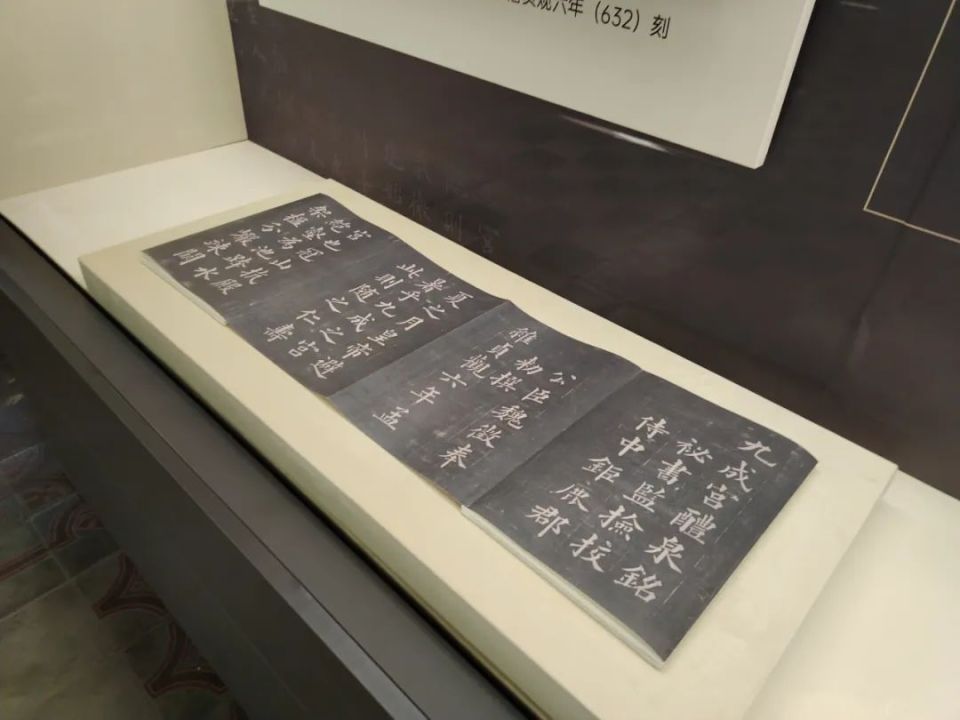 贞观六年（632）刻
九成宮醴泉銘
祕書監撿挍
侍中鉅鹿郡
公臣魏徵奉
勑撰
維貞觀六年孟
夏之月皇帝避
暑乎九成之宮
此則隨之仁壽
宮也冠山抗殿
絶壑為池跨水
架楹分巖竦闕